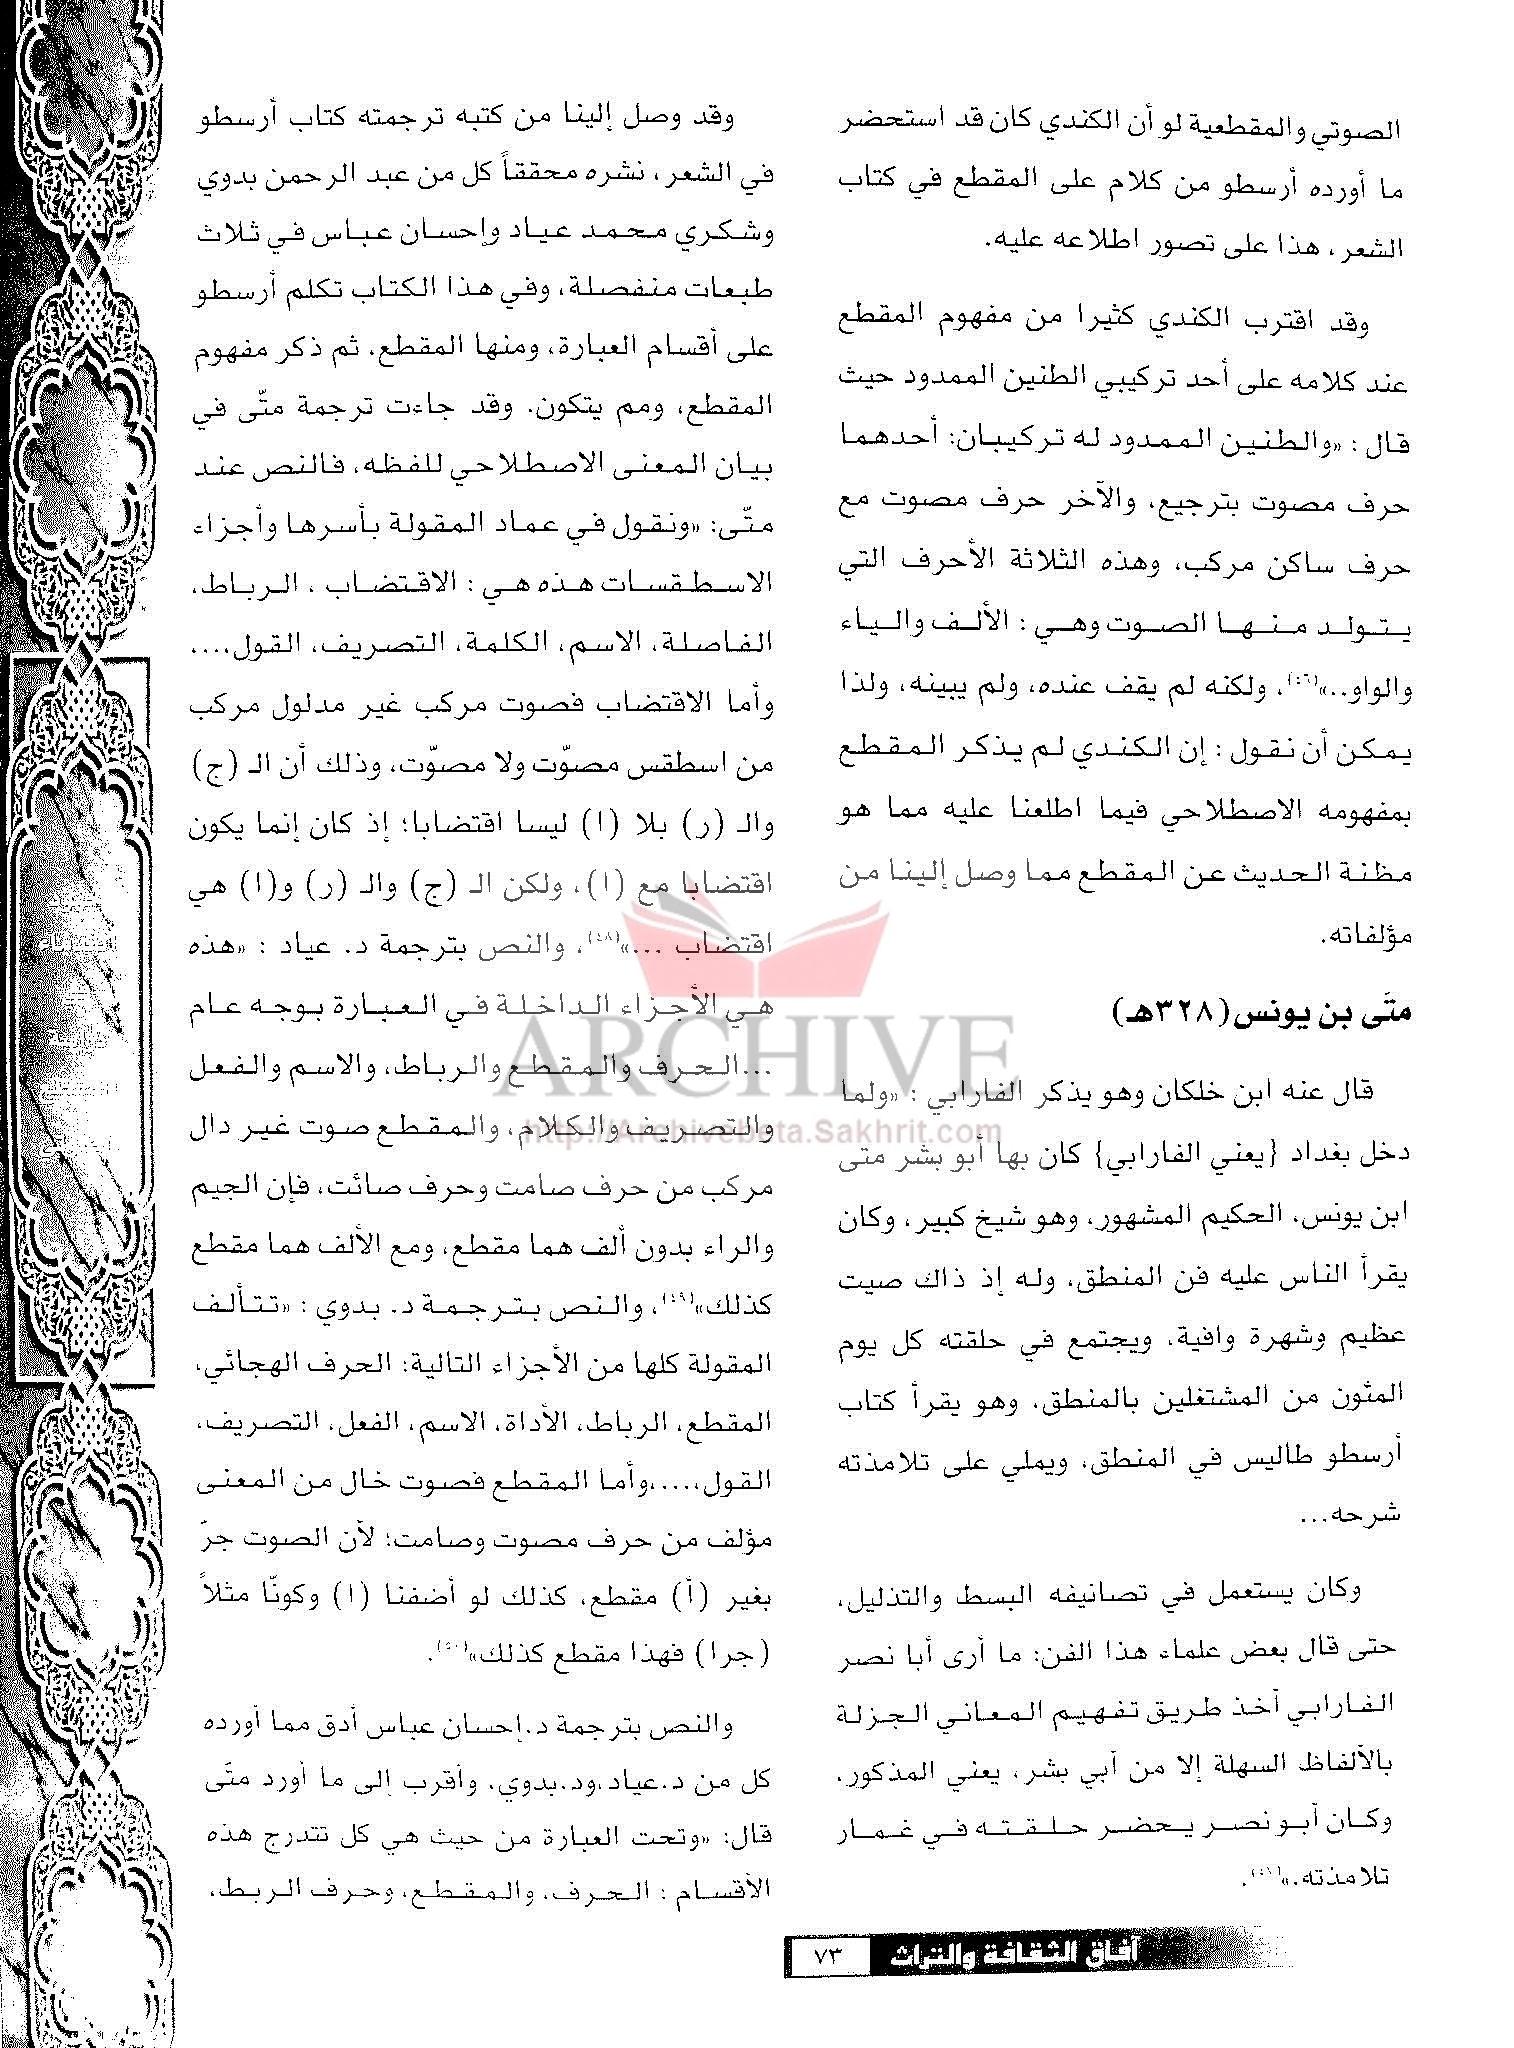 الصوتي والمقطعية لو أن الكندي كان قد استحضر
ما أورده أرسطو من كلام على المقطع في كتاب
الشعر، هذا على تصور اطلاعه عليه.
وقد اقترب الكندي كثيرا من مفهوم المقطع
عند كلامه على أحد تركيبي الطنين الممدود حيث
قال : «والطنين الممدود له تركيبان: أحدهما
حرف مصوت بترجيع، والآخر حرف مصوت مع
حرف ساكن مركب، وهذه الثلاثة الأحرف التي
يتولد منها الصوت وهي : الألف والياء
والواو..»(٤٦)، ولكنه لم يقف عنده، ولم يبينه، ولذا
يمكن أن نقول : إن الكندي لم يذكر المقطع
بمفهومه الاصطلاحي فيما اطلعنا عليه مما هو
مظنة الحديث عن المقطع مما وصل إلينا من
مؤلفاته.
متّى بن يونس (٣٢٨هـ)
قال عنه ابن خلكان وهو يذكر الفارابي : «ولما
دخل بغداد {يعني الفارابي} كان بها أبو بشر متى
ابن يونس، الحكيم المشهور، وهو شيخ كبير، وكان
يقرأ الناس عليه فن المنطق، وله إذ ذاك صيت
عظيم وشهرة وافية، ويجتمع في حلقته كل يوم
المئون من المشتغلين بالمنطق، وهو يقرأ كتاب
أرسطو طاليس في المنطق، ويملي على تلامذته
شرحه...
وكان يستعمل في تصانيفه البسط والتذليل،
حتى قال بعض علماء هذا الفن: ما أرى أبا نصر
الفارابي أخذ طريق تفهيم المعاني الجزلة
بالألفاظ السهلة إلا من أبي بشر، يعني المذكور،
وكان أبو نصر يحضر حلقته في غمار
تلامذته.»(٤٧).
وقد وصل إلينا من كتبه ترجمته كتاب أرسطو
في الشعر، نشره محققاً كل من عبد الرحمن بدوي
وشكري محمد عياد وإحسان عباس في ثلاث
طبعات منفصلة، وفي هذا الكتاب تكلم أرسطو
على أقسام العبارة، ومنها المقطع، ثم ذكر مفهوم
المقطع، ومم يتكون. وقد جاءت ترجمة متّى في
بيان المعنى الاصطلاحي للفظه، فالنص عند
متّى: «ونقول في عماد المقولة بأسرها وأجزاء
الاسطقسات هذه هي : الاقتضاب ، الرباط،
الفاصلة، الاسم، الكلمة، التصريف، القول،...
وأما الاقتضاب فصوت مركب غير مدلول مركب
من اسطقس مصوّت ولا مصوّت، وذلك أن الـ (ج)
والـ (ر) بلا (ا) ليسا اقتضابا؛ إذ كان إنما يكون
اقتضابا مع (ا)، ولكن الـ (ج) والـ (ر) و(ا) هي
اقتضاب ...»(٤٨)، والنص بترجمة د. عياد : «هذه
هي الأجزاء الداخلة في العبارة بوجه عام
...الحرف والمقطع والرباط، والاسم والفعل
والتصريف والكلام، والمقطع صوت غير دال
مركب من حرف صامت وحرف صائت، فإن الجيم
والراء بدون ألف هما مقطع، ومع الألف هما مقطع
كذلك»(٤٩)، والنص بترجمة د. بدوي : «تتألف
المقولة كلها من الأجزاء التالية: الحرف الهجائي،
المقطع، الرباط، الأداة، الاسم، الفعل، التصريف،
القول،...،وأما المقطع فصوت خال من المعنى
مؤلف من حرف مصوت وصامت؛ لأن الصوت جرّ
بغير (أ) مقطع، كذلك لو أضفنا (ا) وكونّا مثلاً
(جرا) فهذا مقطع كذلك».
والنص بترجمة د.إحسان عباس أدق مما أورده
كل من د.عياد ،ود.بدوي، وأقرب إلى ما أورد متّى
قال: «وتحت العبارة من حيث هي كل تتدرج هذه
الأقسام : الحرف، والمقطع، وحرف الربط،
آفاق الثقافة والتراث ٧٣
ARCHIVE
http://Archivebeta.Sakhrit.com